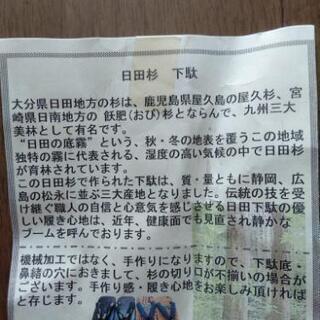 日田杉　下駄
大分県日田地方の杉は、鹿児島県屋久島の屋久杉、宮
崎県日南地方の 飫肥(おび)杉とならんで、九州三大
美林として有名です。
“日田の底霧”という、秋・冬の地表を覆うこの地域
独特の霧に代表される、湿度の高い気候の中で日田杉
が育林されています。
この日田杉で作られた下駄は、質・量ともに静岡、広
島の松永に並ぶ三大産地となりました。伝統の技を受
け継ぐ職人の自信と心意気を感じさせる日田下駄の優
しい履き心地は、近年、健康面でも見直され静かな
ブームを呼んでおります。
機械加工ではなく、手作りになりますので、下駄底・
鼻緒の穴におきまして、杉の切り口が不揃いの場合が
ございます。手作り感・履き心地をお楽しみ頂ければ
と存じます。